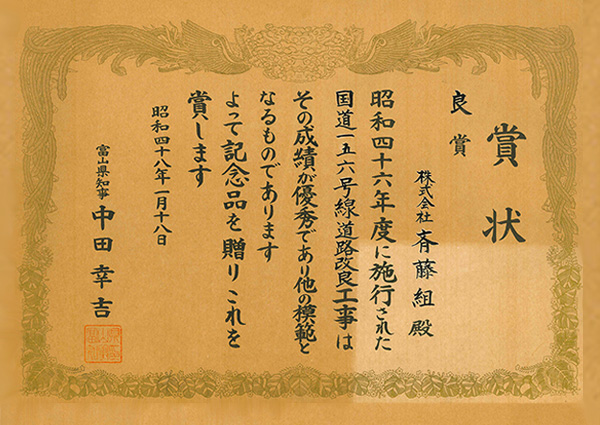 賞状
良賞
株式会社 斉藤組殿
昭和四十六年度に施行された
国道一五六号線道路改良工事は
その成績が優秀であり他の模範と
なるものであります
よって記念品を贈りこれを
賞します
昭和四十八年一月十八日
富山県知事 中田幸吉